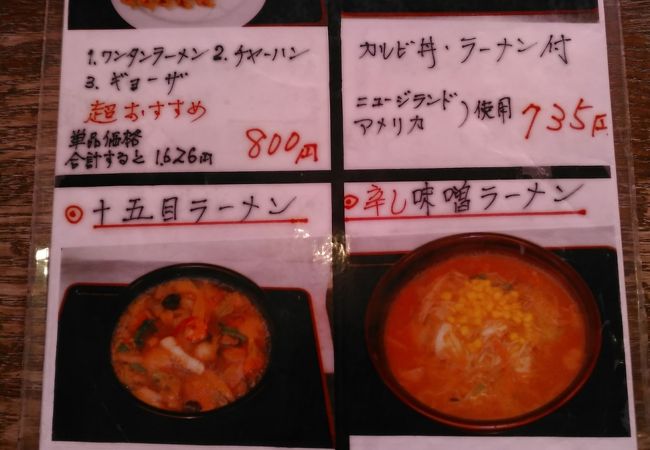 1. ワンタンラーメン 2. チャーハン
3. ギョーザ
超おすすめ
単品価格
合計すると 1,626円
800円
カルビ丼・ラーメン付
ニュージランド
アメリカ ) 使用
735円
◎十五目ラーメン
◎辛し味噌ラーメン